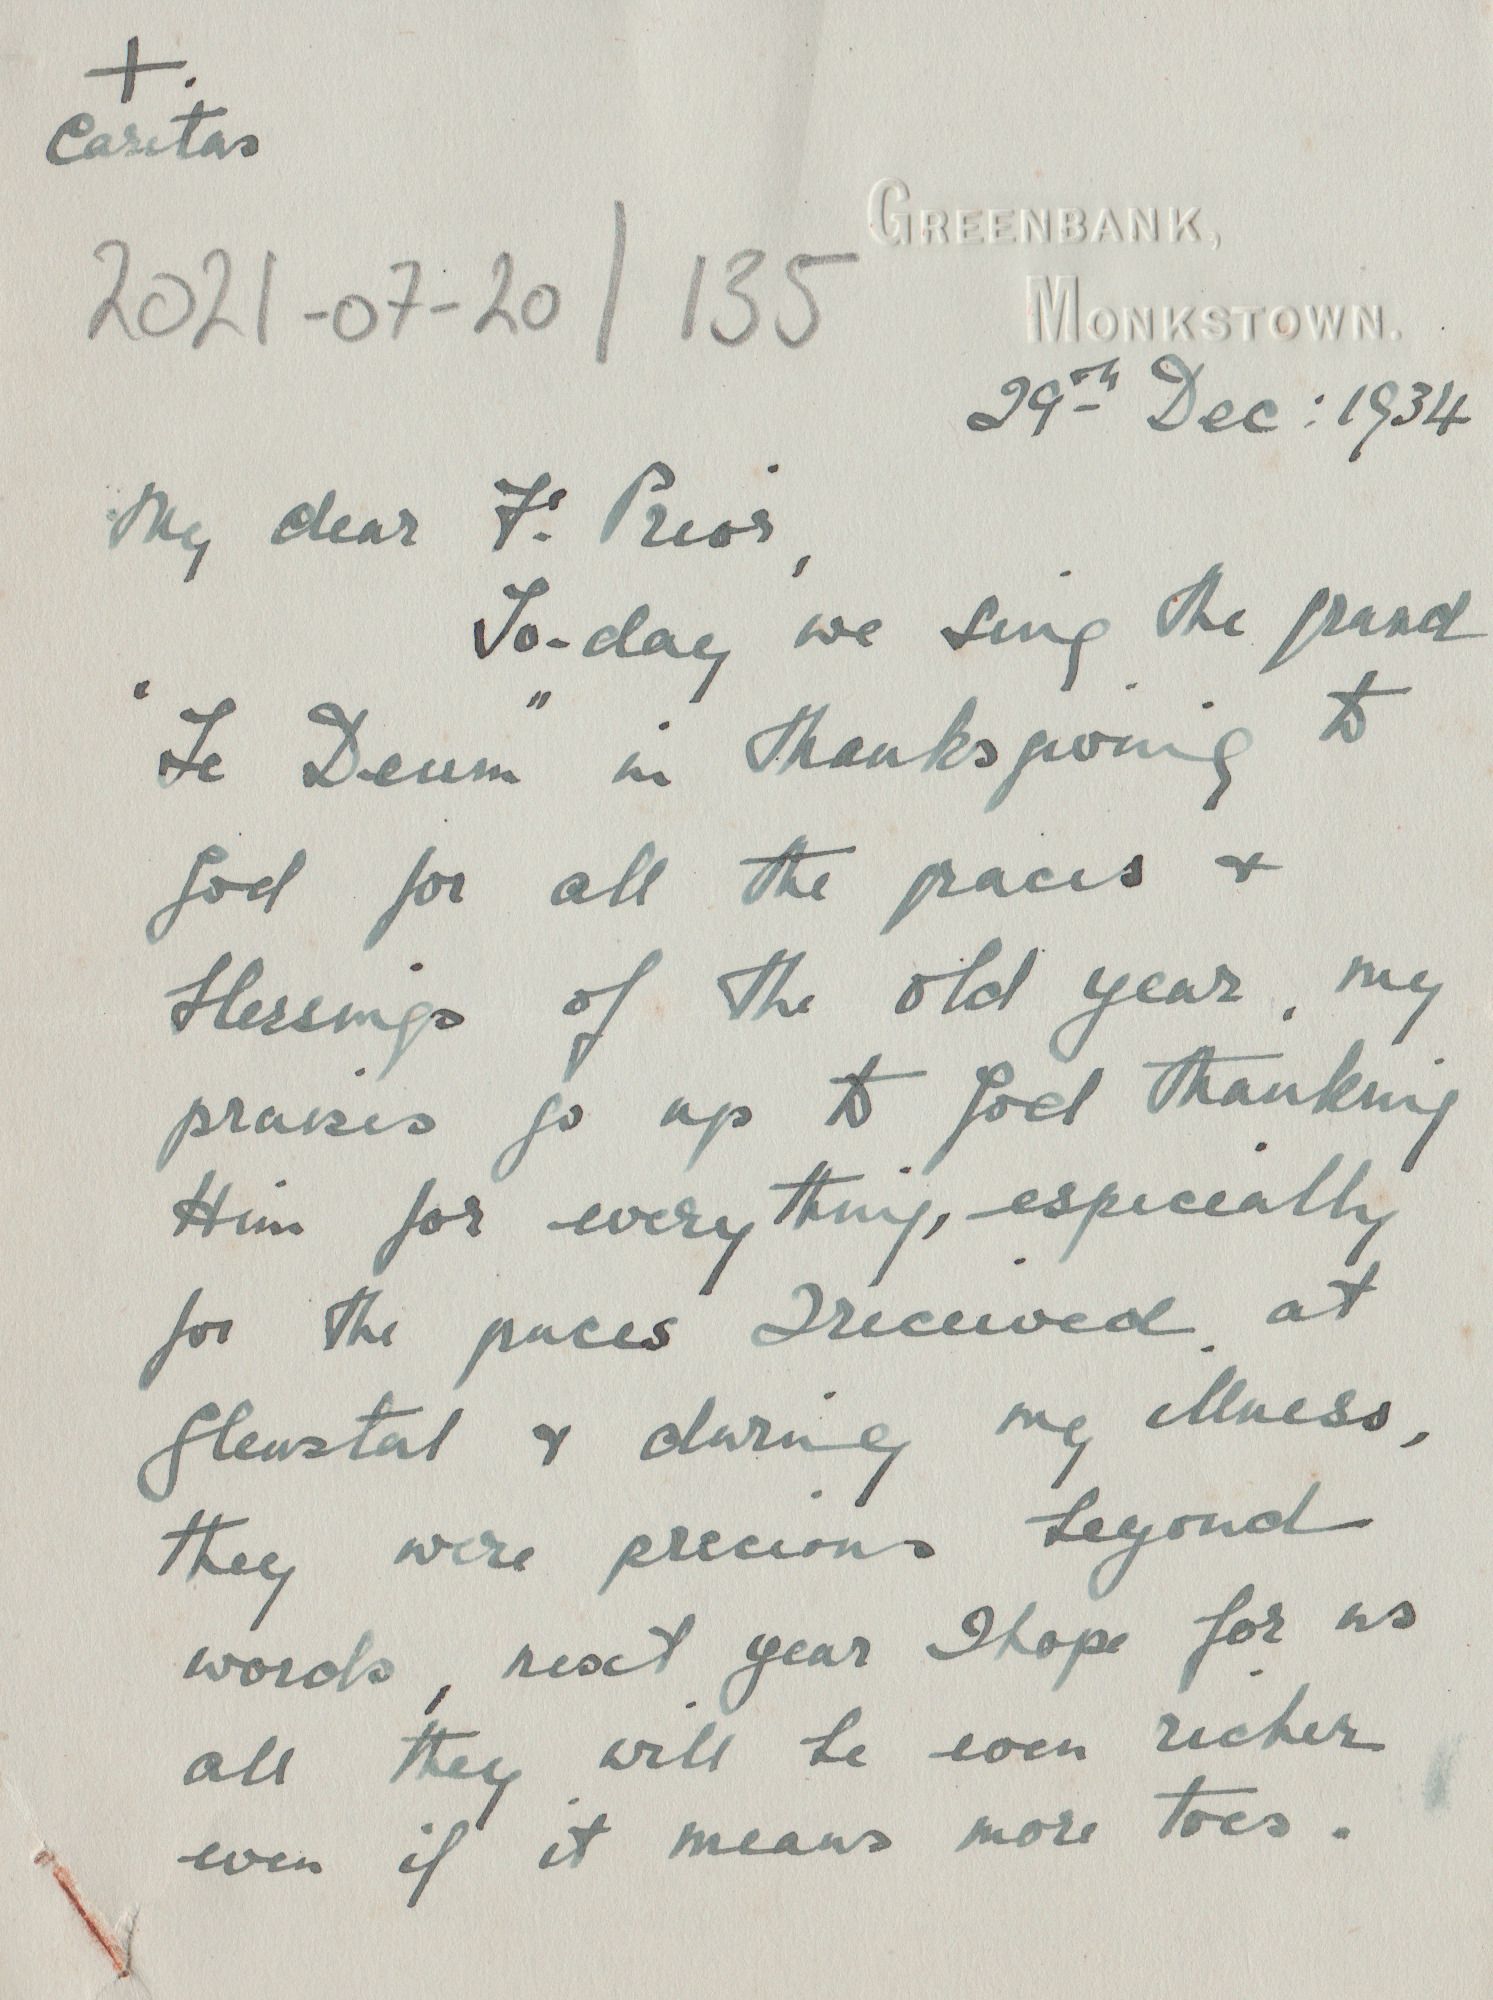 +.
Caritas
2021-07-20/135
GREENBANK,
MONKSTOWN.
29th Dec: 1934
My dear Fr. Prior,
To-day we sing the grand
"Te Deum" in thanksgiving to
God for all the graces &
blessings of the old year, my
praises go up to God thanking
Him for everything, especially
for the graces I received at
Glenstal & during my illness,
they were precious beyond
words, next year I hope for us
all they will be even richer
even if it means more toes.